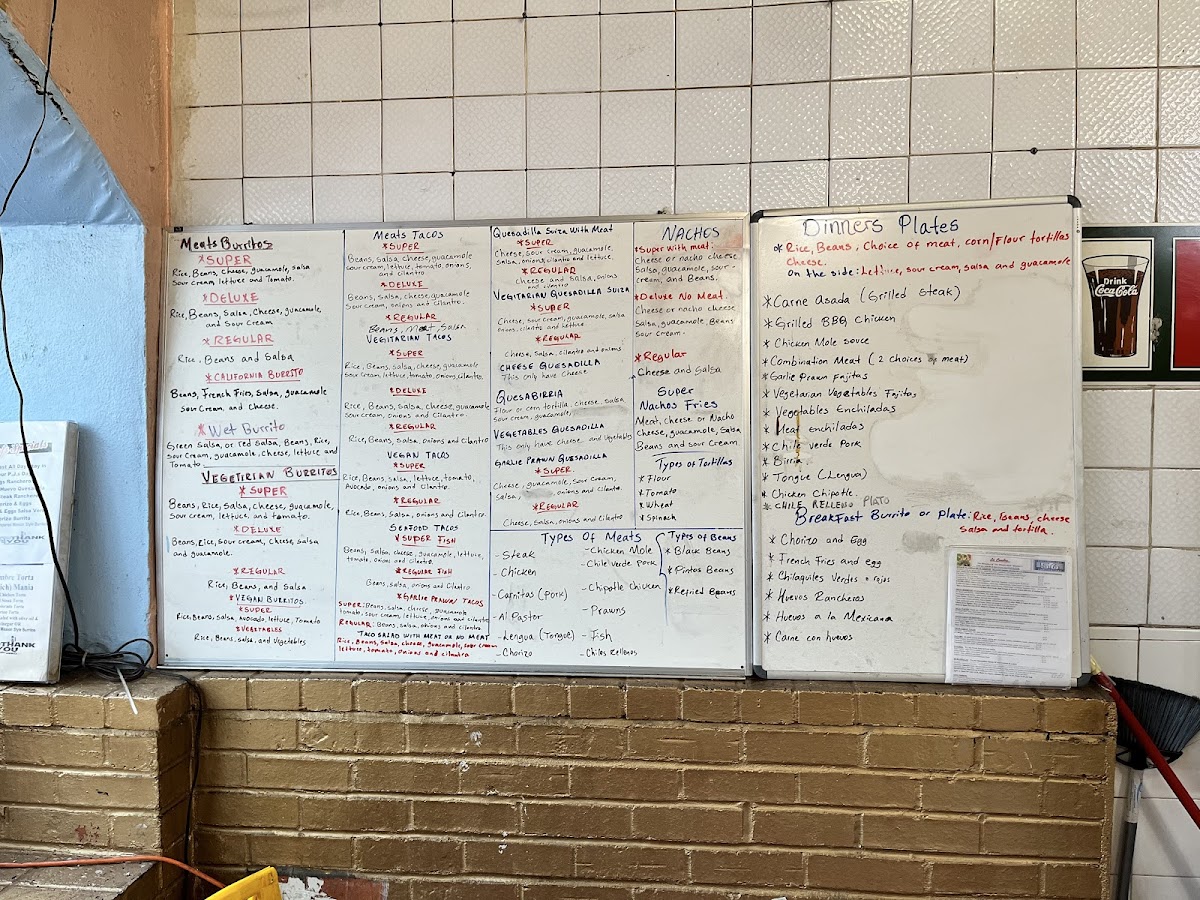 Meats Burritos
*SUPER
Rice, Beans, Cheese, guacamole, salsa
Sour cream lettuce and Tomato.
*DELUXE
Rice, Beans, Salsa, Cheese, guacamole,
and Sour Cream
*REGULAR
Rice, Beans and Salsa
*CALIFORNIA BURRITO
Beans, French Fries, Salsa, guacamole
Sour Cream, and Cheese.
*Wet Burrito
Green Salsa, or red Salsa, Beans, Rice,
Sour Cream, guacamole, cheese, lettuce and
Tomato
VEGETIRIAN BURRITOS
*SUPER
Beans, Rice, Salsa, cheese, guacamole,
Sour cream, lettuce, and tomato.
*DELUXE
Beans, Rice, Sour cream, cheese, salsa
and guacamole.
*REGULAR
Rice, Beans, and Salsa
*VEGAN BURRITOS
*SUPER
Rice, Beans, salsa, Avocado, lettuce, Tomato
*VEGETABLES
Rice, Beans, salsa, and vegetables
Meats TACOS
*SUPER
Beans, Salsa, Cheese, guacamole
sour cream, lettuce, tomato, onions,
and cilantro
*DELUXE
Beans, Salsa, cheese, guacamole
Sour cream, onions and cilantro.
*REGULAR
Beans, Meat, Salsa
VEGITARIAN TACOS
*SUPER
Rice, Beans, salsa, cheese, guacamole
sour cream, lettuce, tomato, onions, cilantro.
*DELUXE
Rice, Beans, Salsa, cheese, guacamole
Sour cream, onions and Cilantro.
*REGULAR
Rice, Beans, Salsa, onions and Cilantro
VEGAN TACOS
*SUPER
Rice, Beans, salsa, lettuce, tomato,
Avocado, onions and cilantro.
*REGULAR
Rice, Beans, salsa, onions and Cilantro.
SEAFOOD TACOS
*SUPER FISH
Beans, salsa, cheese, guacamole, lettuce,
tomato, onions and Cilantro.
*REGULAR FISH
Beans, salsa, onions and Cilantro
*GARLIC PRAWN TACOS
SUPER: Beans, salsa, cheese, guacamole
tomato, sour cream, lettuce, onions and cilantro
REGULAR: Beans, salsa, onions and cilantro.
TACO SALAD WITH MEAT OR NO MEAT
Rice, Beans, Salsa, cheese, guacamole, sour cream
lettuce, tomato, onions and cilantro
Quesadilla Suiza With Meat
*SUPER
Cheese, sour cream, guacamole,
salsa, onions, cilantro and lettuce.
*REGULAR
Cheese and Salsa, onions
and cilantro
VEGITARIAN QUESADILLA SUIZA
*SUPER
Cheese, sour cream, guacamole, salsa
onions, cilantro and lettuce
*REGULAR
Cheese, Salsa, cilantro and onions
CHEESE QUESADILLA
This only have Cheese
QUESABIRRIA
Flour or corn tortilla, cheese, salsa
sour cream, guacamole,
VEGETABLES QUESADILLA
This only have Cheese and Vegetables
GARLIC PRAWN QUESADILLA
*SUPER.
Cheese, guacamole, sour Cream,
Salsa, onions and Cilantro.
*REGULAR
Cheese, Salsa, onions and Cilantro
NACHOS
*Super with meat:
Cheese or nacho cheese
Salsa, guacamole, sour-
cream, and Beans.
*Deluxe No Meat:
Cheese or nacho cheese
Salsa, guacamole, Beans
Sour cream.
*Regular
Cheese and Salsa
Super
Nachos Fries
Meat, cheese or Nacho
Cheese, guacamole, Salsa
Beans and sour Cream
Types of Tortillas
*Flour
*Tomato
*Wheat
*Spinach
Types Of Meats
-Steak
-Chicken
-Carnitas (Pork)
-Al Pastor
-Lengua (Tongue)
-Chorizo
-Chicken Mole
-Chile verde Pork
-Chipotle Chicken
-Prawns
-Fish
-Chiles Rellenos
Types of Beans
*Black Beans
*Pintos Beans
*Refried Beans
Dinners Plates
*Rice, Beans, Choice of meat, corn/Flour tortillas
Cheese.
On the side: Lettuce, sour cream, salsa and guacamole
*Carne Asada (Grilled Steak)
*Grilled BBQ Chicken
*Chicken Mole souce
*Combination Meat (2 choices of meat)
*Garlic Prawn Fajitas
*Vegetarian Vegetables Fajitas
*Vegetables Enchiladas
*Meat enchiladas
*Chile verde Pork
*Birria
*Tongue (Lengua)
*Chicken Chipotle
*CHILE RELLENO PLATO
BreakFast Burrito or Plate: Rice, Beans, cheese
Salsa and tortilla.
*Chorizo and Egg
*French Fries and Egg
*Chilaquiles Verdes o rojos
*Huevos Rancheros
*Huevos a la Mexicana
*Carne con huevos
Drink
Coca-Cola
THANK
YOU